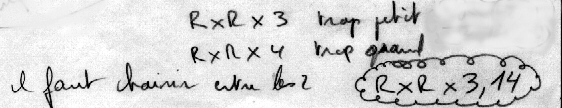 R x R x 3 trop petit
R x R x 4 trop grand
il faut choisir entre les 2 R x R x 3,14